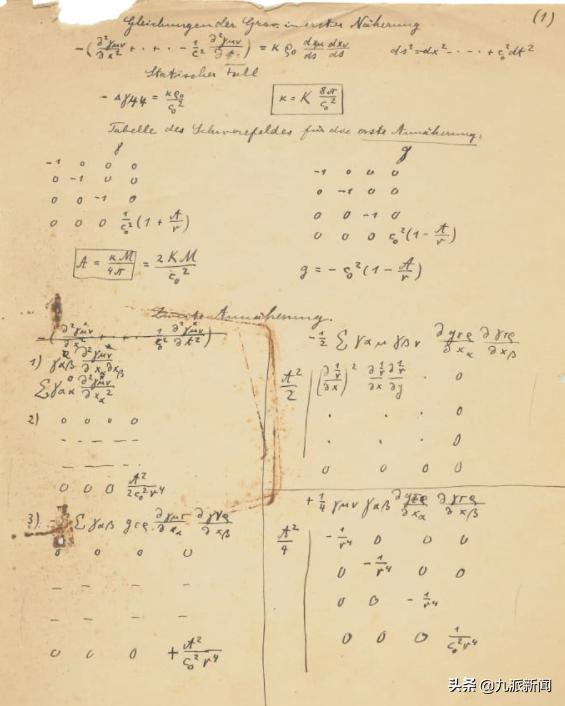 (1)
Gleichungen der Grav. in erster Näherung
-(∂²γμν/∂x² + · + · - 1/c² ∂²γμν/∂t²) = κ ρ₀ dxμ/ds dxν/ds   ds² = -dx² - · · · + c₀² dt²
Statischer Fall
- Δγ44 = κρ₀/c₀²   κ = K 8π/c₀²
Tabelle des Schwerefeldes für die erste Annäherung.
γ   g
-1 0 0 0   -1 0 0 0
0 -1 0 0   0 -1 0 0
0 0 -1 0   0 0 -1 0
0 0 0 1/c₀² (1 + A/r)   0 0 0 c₀² (1 - A/r)
A = κM/4π = 2KM/c₀²   g = - c₀² (1 - A/r)
Zweite Annäherung.
-(∂²γμν/∂x² + · + · - 1/c₀² ∂²γμν/∂t²)
1) γαβ ∂²γμν/∂xα∂xβ
Σ γαα ∂²γμν/∂xα²
2) 0 0 0 0
- - - -
0 0 0 A²/2c₀²r⁴
3) Σ γαβ gτρ ∂γμτ/∂xα ∂γνρ/∂xβ
0 0 0 0
- - - -
- - - -
0 0 0 + A²/c₀²r⁴
-1/2 Σ γαμ γβν ∂gτρ/∂xα ∂γτρ/∂xβ
A²/2 (∂1/r/∂x)² ∂1/r/∂x ∂1/r/∂y · 0
· · · 0
· · · 0
0 0 0 0
+ 1/4 γμν γαβ ∂gτρ/∂xα ∂γτρ/∂xβ
A²/4 -1/r⁴ 0 0 0
0 -1/r⁴ 0 0
0 0 -1/r⁴
0 0 0 1/c₀²r⁴
头条 @九派新闻